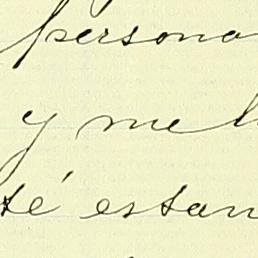 persona
y me h
té estan